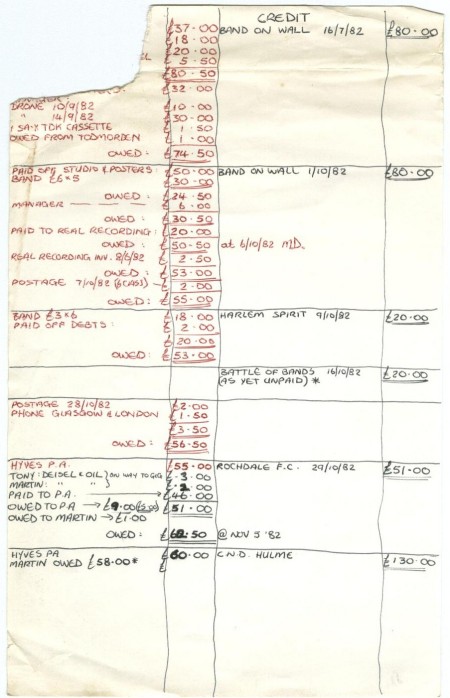 CREDIT
£37.00 BAND ON WALL 16/7/82 £80.00
£18.00
£20.00
£5.50
£80.50
£32.00
DRONE 10/9/82 £10.00
" 14/9/82 £30.00
1 SA-X TDK CASSETTE £1.50
OWED FROM TODMORDEN £1.00
OWED: £74.50
PAID OFF STUDIO & POSTERS: £50.00 BAND ON WALL 1/10/82 £80.00
BAND £6 × 5 £30.00
OWED: £24.50
MANAGER £6.00
OWED: £30.50
PAID TO REAL RECORDING: £20.00
OWED: £50.50 at 6/10/82 M.D.
REAL RECORDING INV. 8/6/82 £2.50
OWED: £53.00
POSTAGE 7/10/82 (1st CLASS) £2.00
OWED: £55.00
BAND £3 × 6 £18.00 HARLEM SPIRIT 9/10/82 £20.00
PAID OFF DEBTS: £2.00
£20.00
OWED: £53.00
BATTLE OF BANDS 16/10/82 £20.00
(AS YET UNPAID) *
POSTAGE 28/10/82 £2.00
PHONE GLASGOW & LONDON £1.50
£3.50
OWED: £56.50
HYVES P.A. £55.00 ROCHDALE F.C. 29/10/82 £51.00
TONY: DEISEL & OIL } ON WAY TO GIG £3.00
MARTIN: " " } £2.00
PAID TO P.A. £46.00
OWED TO P.A. £9.00 £51.00
OWED TO MARTIN → £1.00
OWED: .50 @ NOV 5 '82
HYVES PA £60.00 C.N.D. HULME £130.00
MARTIN OWED £58.00* £